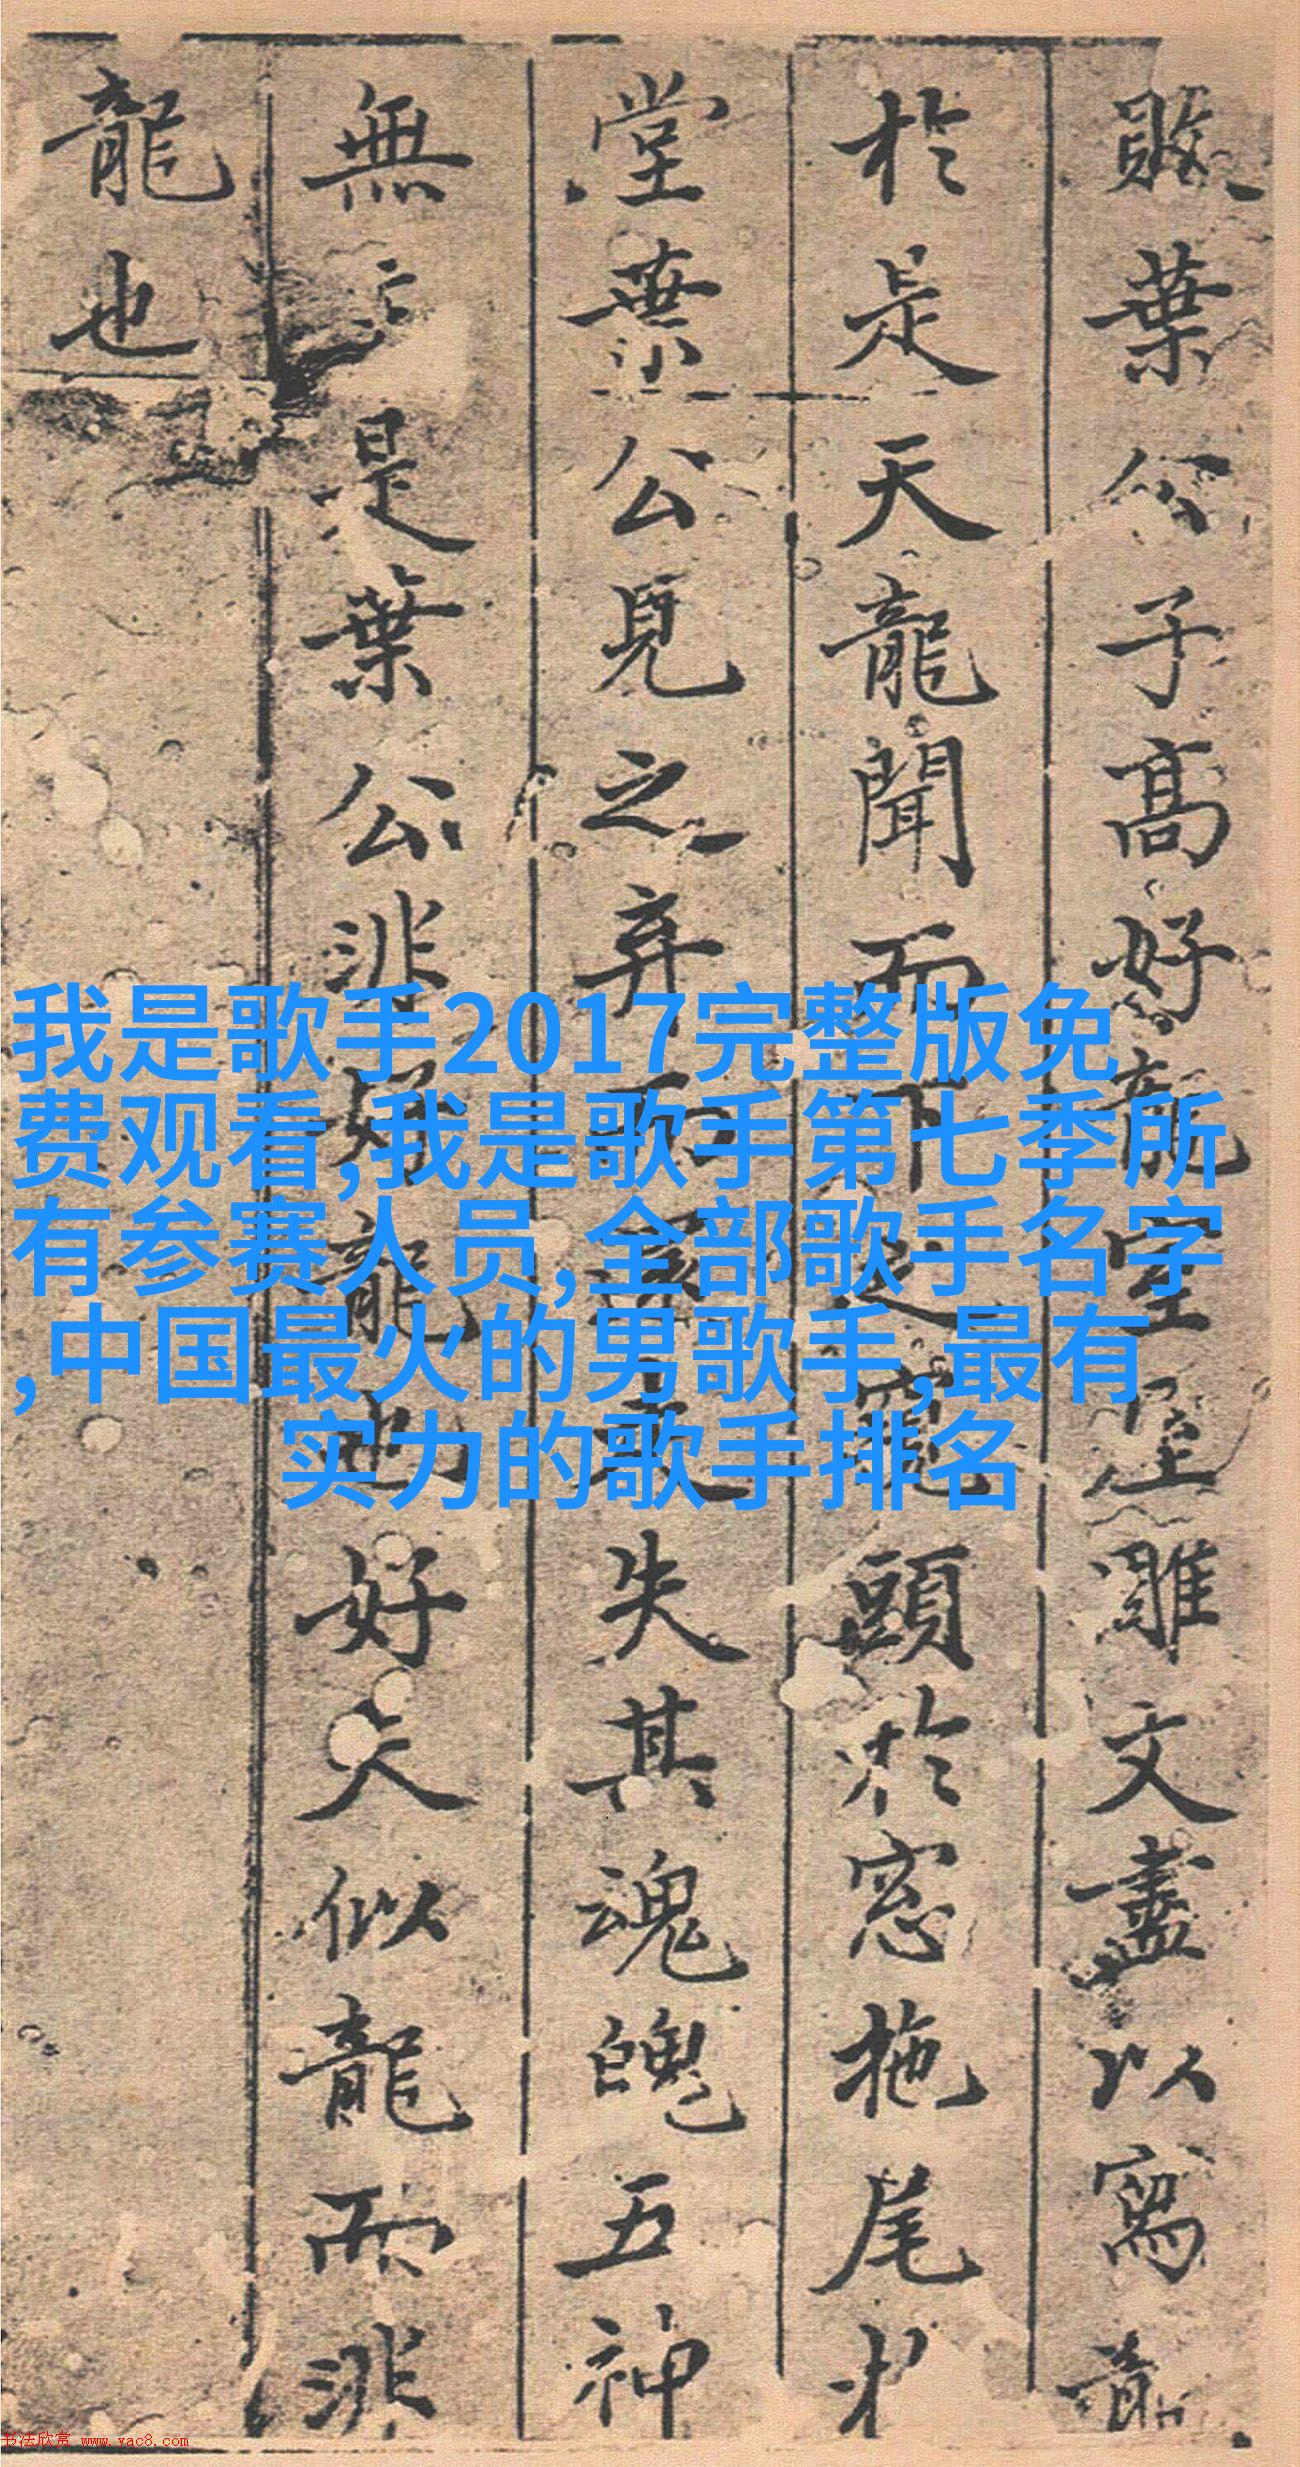 敗葉公子髙好龍室雕文盡以寫龍
於是天龍聞而下之窺頭於窓拖尾於
堂葉公見之弃而還走失其魂魄五神
無主是葉公非好龍也好夫似龍而非
龍也
我是歌手2017完整版免
费观看,我是歌手第七季所
有参赛人员,全部歌手名字
,中国最火的男歌手,最有
实力的歌手排名
书法欣赏 www.yac8.com